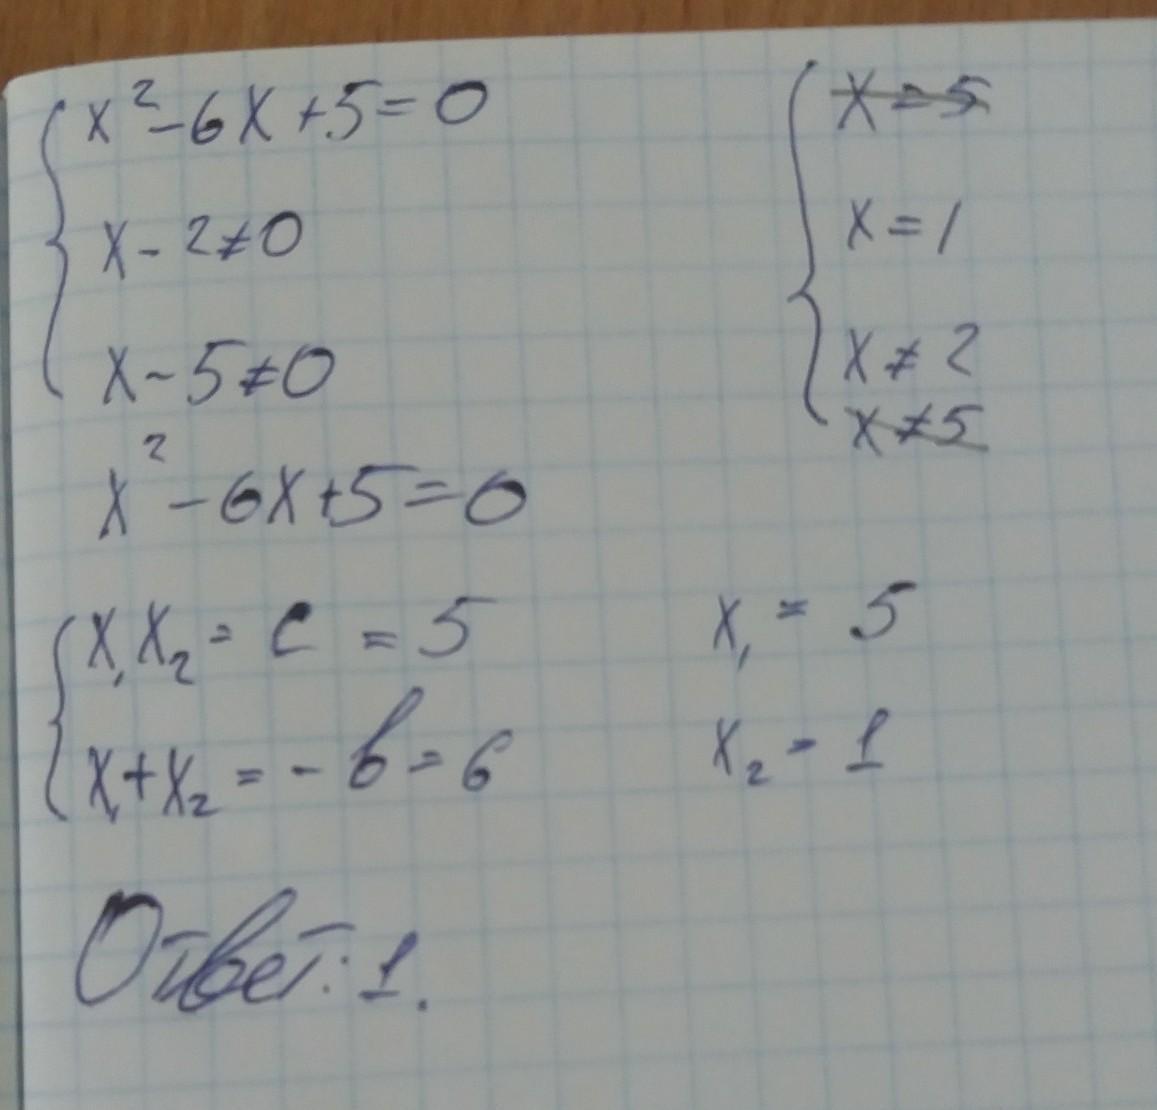 x² - 6x + 5 = 0
x - 2 ≠ 0
x - 5 ≠ 0
x = 5
x = 1
x ≠ 2
x ≠ 5
x² - 6x + 5 = 0
x₁x₂ = c = 5
x₁ + x₂ = - b = 6
x₁ = 5
x₂ = 1
Ответ: 1.